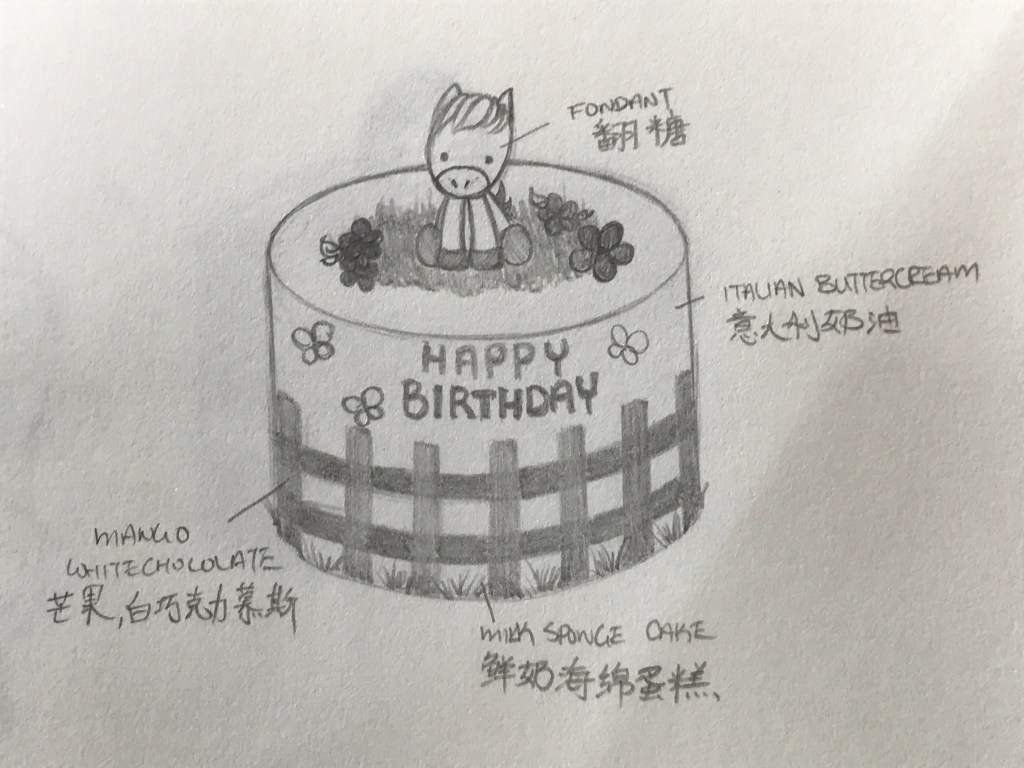 FONDANT
翻糖
ITALIAN BUTTERCREAM
意大利奶油
HAPPY
BIRTHDAY
MANGO
WHITECHOCOLATE
芒果,白巧克力慕斯
MILK SPONGE CAKE
鲜奶海绵蛋糕